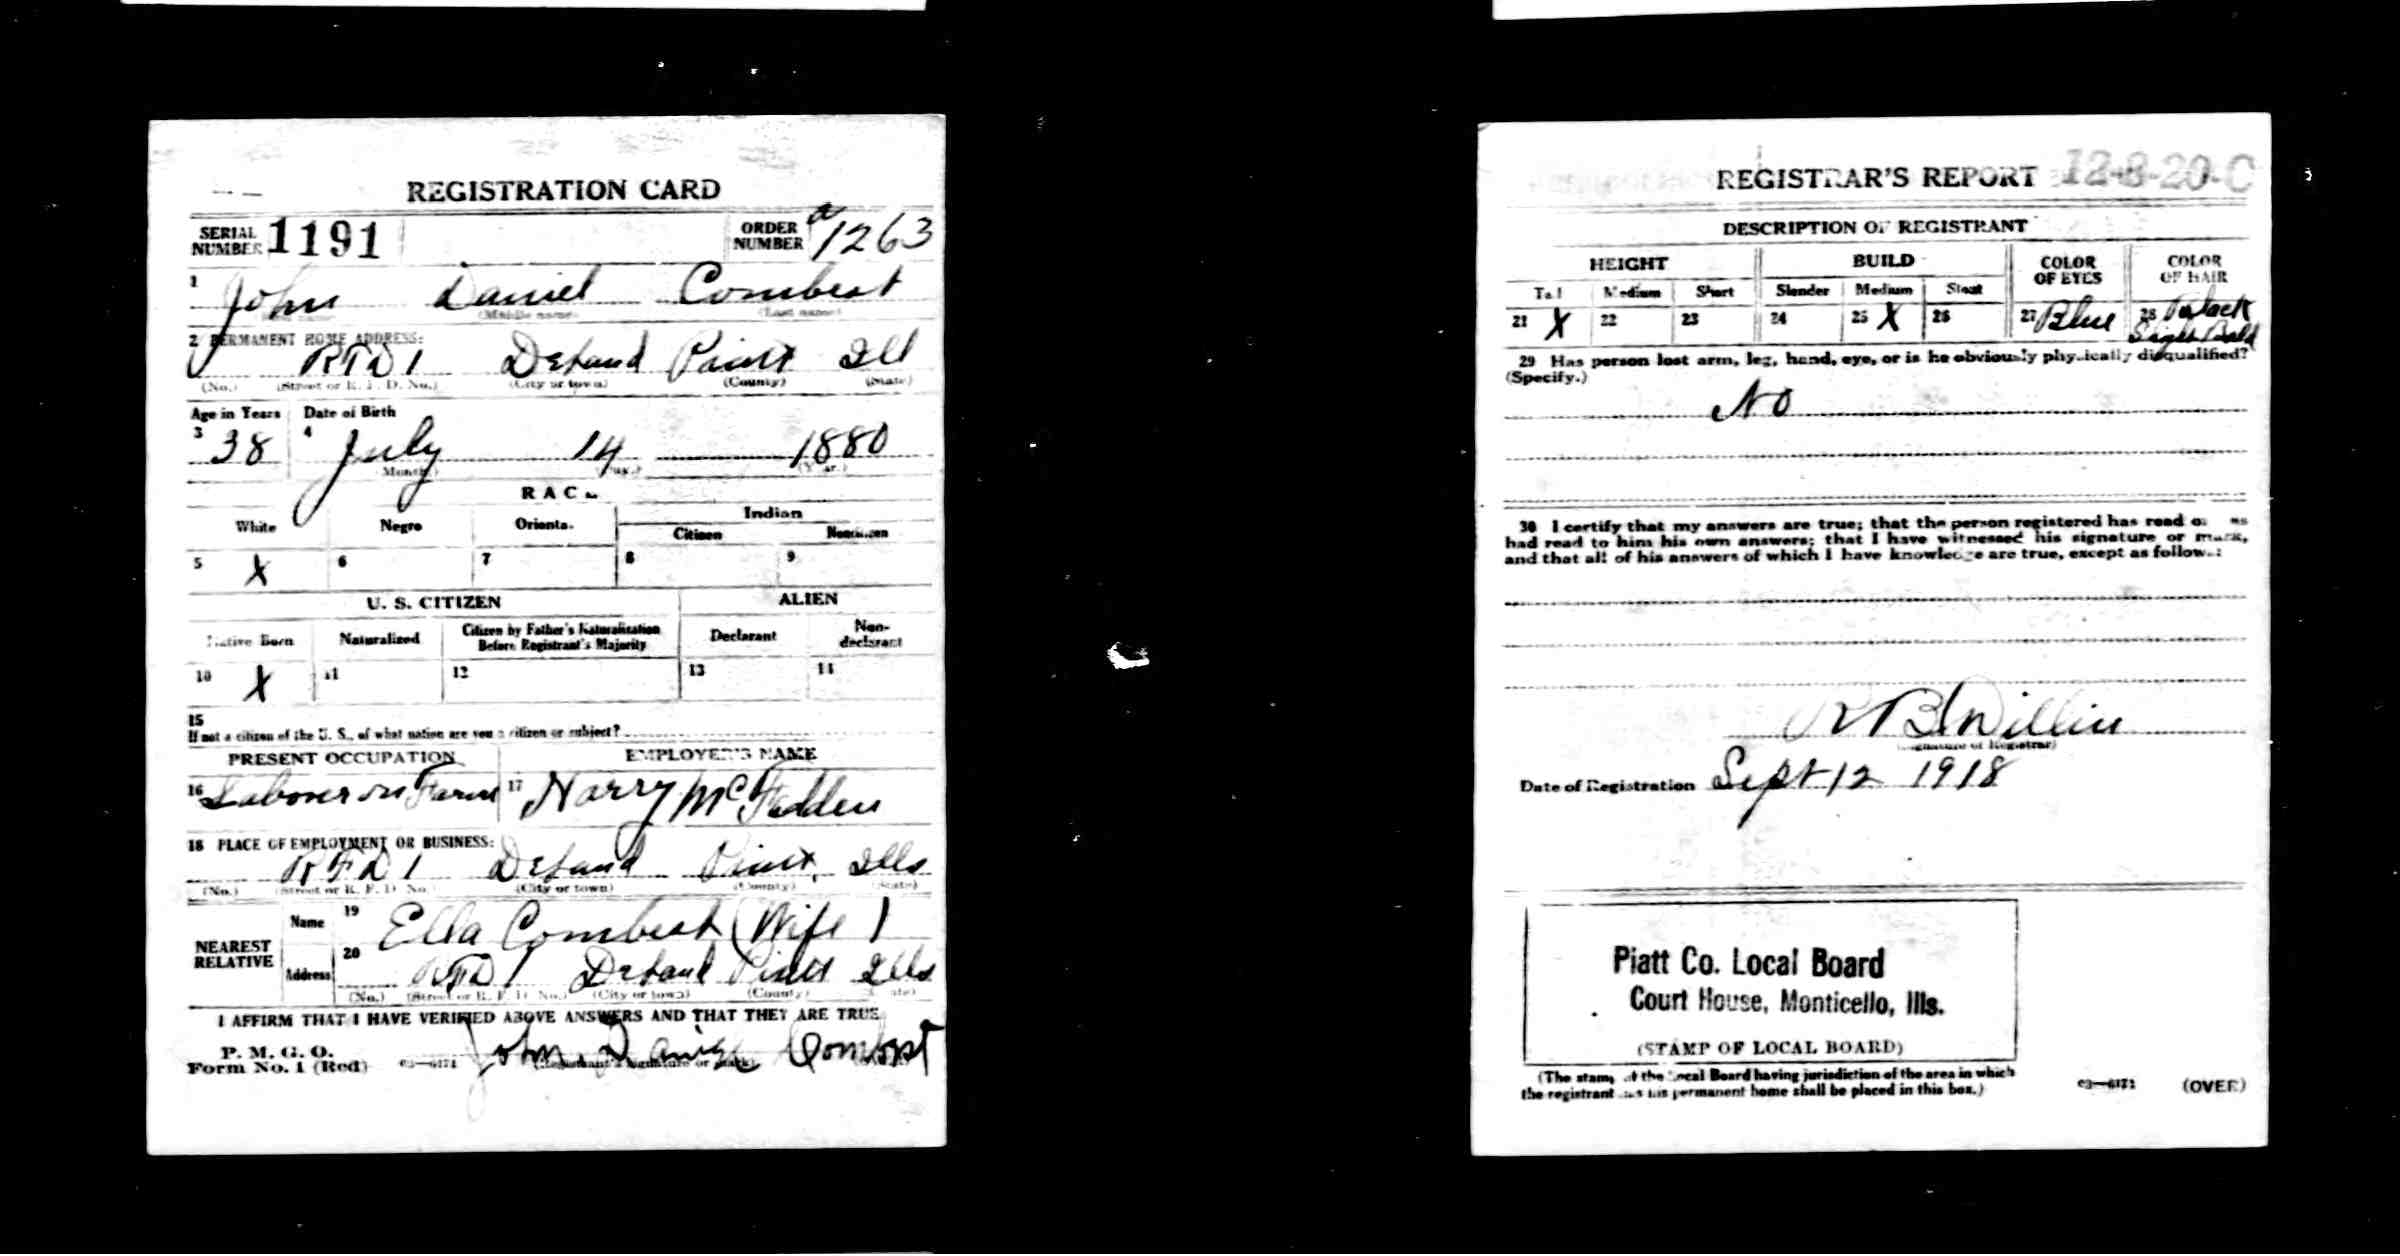 REGISTRATION CARD
SERIAL NUMBER 1191 ORDER NUMBER a1263
1 John Daniel Combest
(Middle name) (Last name)
2 PERMANENT HOME ADDRESS:
RFD 1 DeLand Piatt Ill
(No.) (Street or R. F. D. No.) (City or town) (County) (State)
Age in Years Date of Birth
3 38 4 July 14 1880
(Month.) (Day.) (Year.)
RACE
White Negro Oriental Indian
Citizen Noncitizen
5 X 6 7 8 9
U. S. CITIZEN ALIEN
Native Born Naturalized Citizen by Father's Naturalization Before Registrant's Majority Declarant Non-declarant
10 X 11 12 13 14
15
If not a citizen of the U. S., of what nation are you a citizen or subject?
PRESENT OCCUPATION EMPLOYER'S NAME
16 Laborer on Farm 17 Harry McFadden
18 PLACE OF EMPLOYMENT OR BUSINESS:
RFD 1 DeLand Piatt, Ills
(No.) (Street or R. F. D. No.) (City or town) (County) (State)
NEAREST RELATIVE
Name 19 Ella Combest (Wife)
Address 20 RFD 1 DeLand Piatt Ills
(No.) (Street or R. F. D. No.) (City or town) (County) (State)
I AFFIRM THAT I HAVE VERIFIED ABOVE ANSWERS AND THAT THEY ARE TRUE
P. M. G. O.
Form No. 1 (Red) 03—6171 John Daniel Combest
(Registrant's signature or mark)
REGISTRAR'S REPORT 12-8-20-C
DESCRIPTION OF REGISTRANT
HEIGHT BUILD COLOR OF EYES COLOR OF HAIR
Tall Medium Short Slender Medium Stout
21 X 22 23 24 25 X 26 27 Blue 28 Black
Slight Bald
29 Has person lost arm, leg, hand, eye, or is he obviously physically disqualified?
(Specify.)
No
30 I certify that my answers are true; that the person registered has read or has
had read to him his own answers; that I have witnessed his signature or mark,
and that all of his answers of which I have knowledge are true, except as follows:
(Signature of Registrar)
Date of Registration Sept 12 1918
Piatt Co. Local Board
Court House, Monticello, Ills.
(STAMP OF LOCAL BOARD)
(The stamp of the Local Board having jurisdiction of the area in which
the registrant has his permanent home shall be placed in this box.)
03—6171 (OVER)